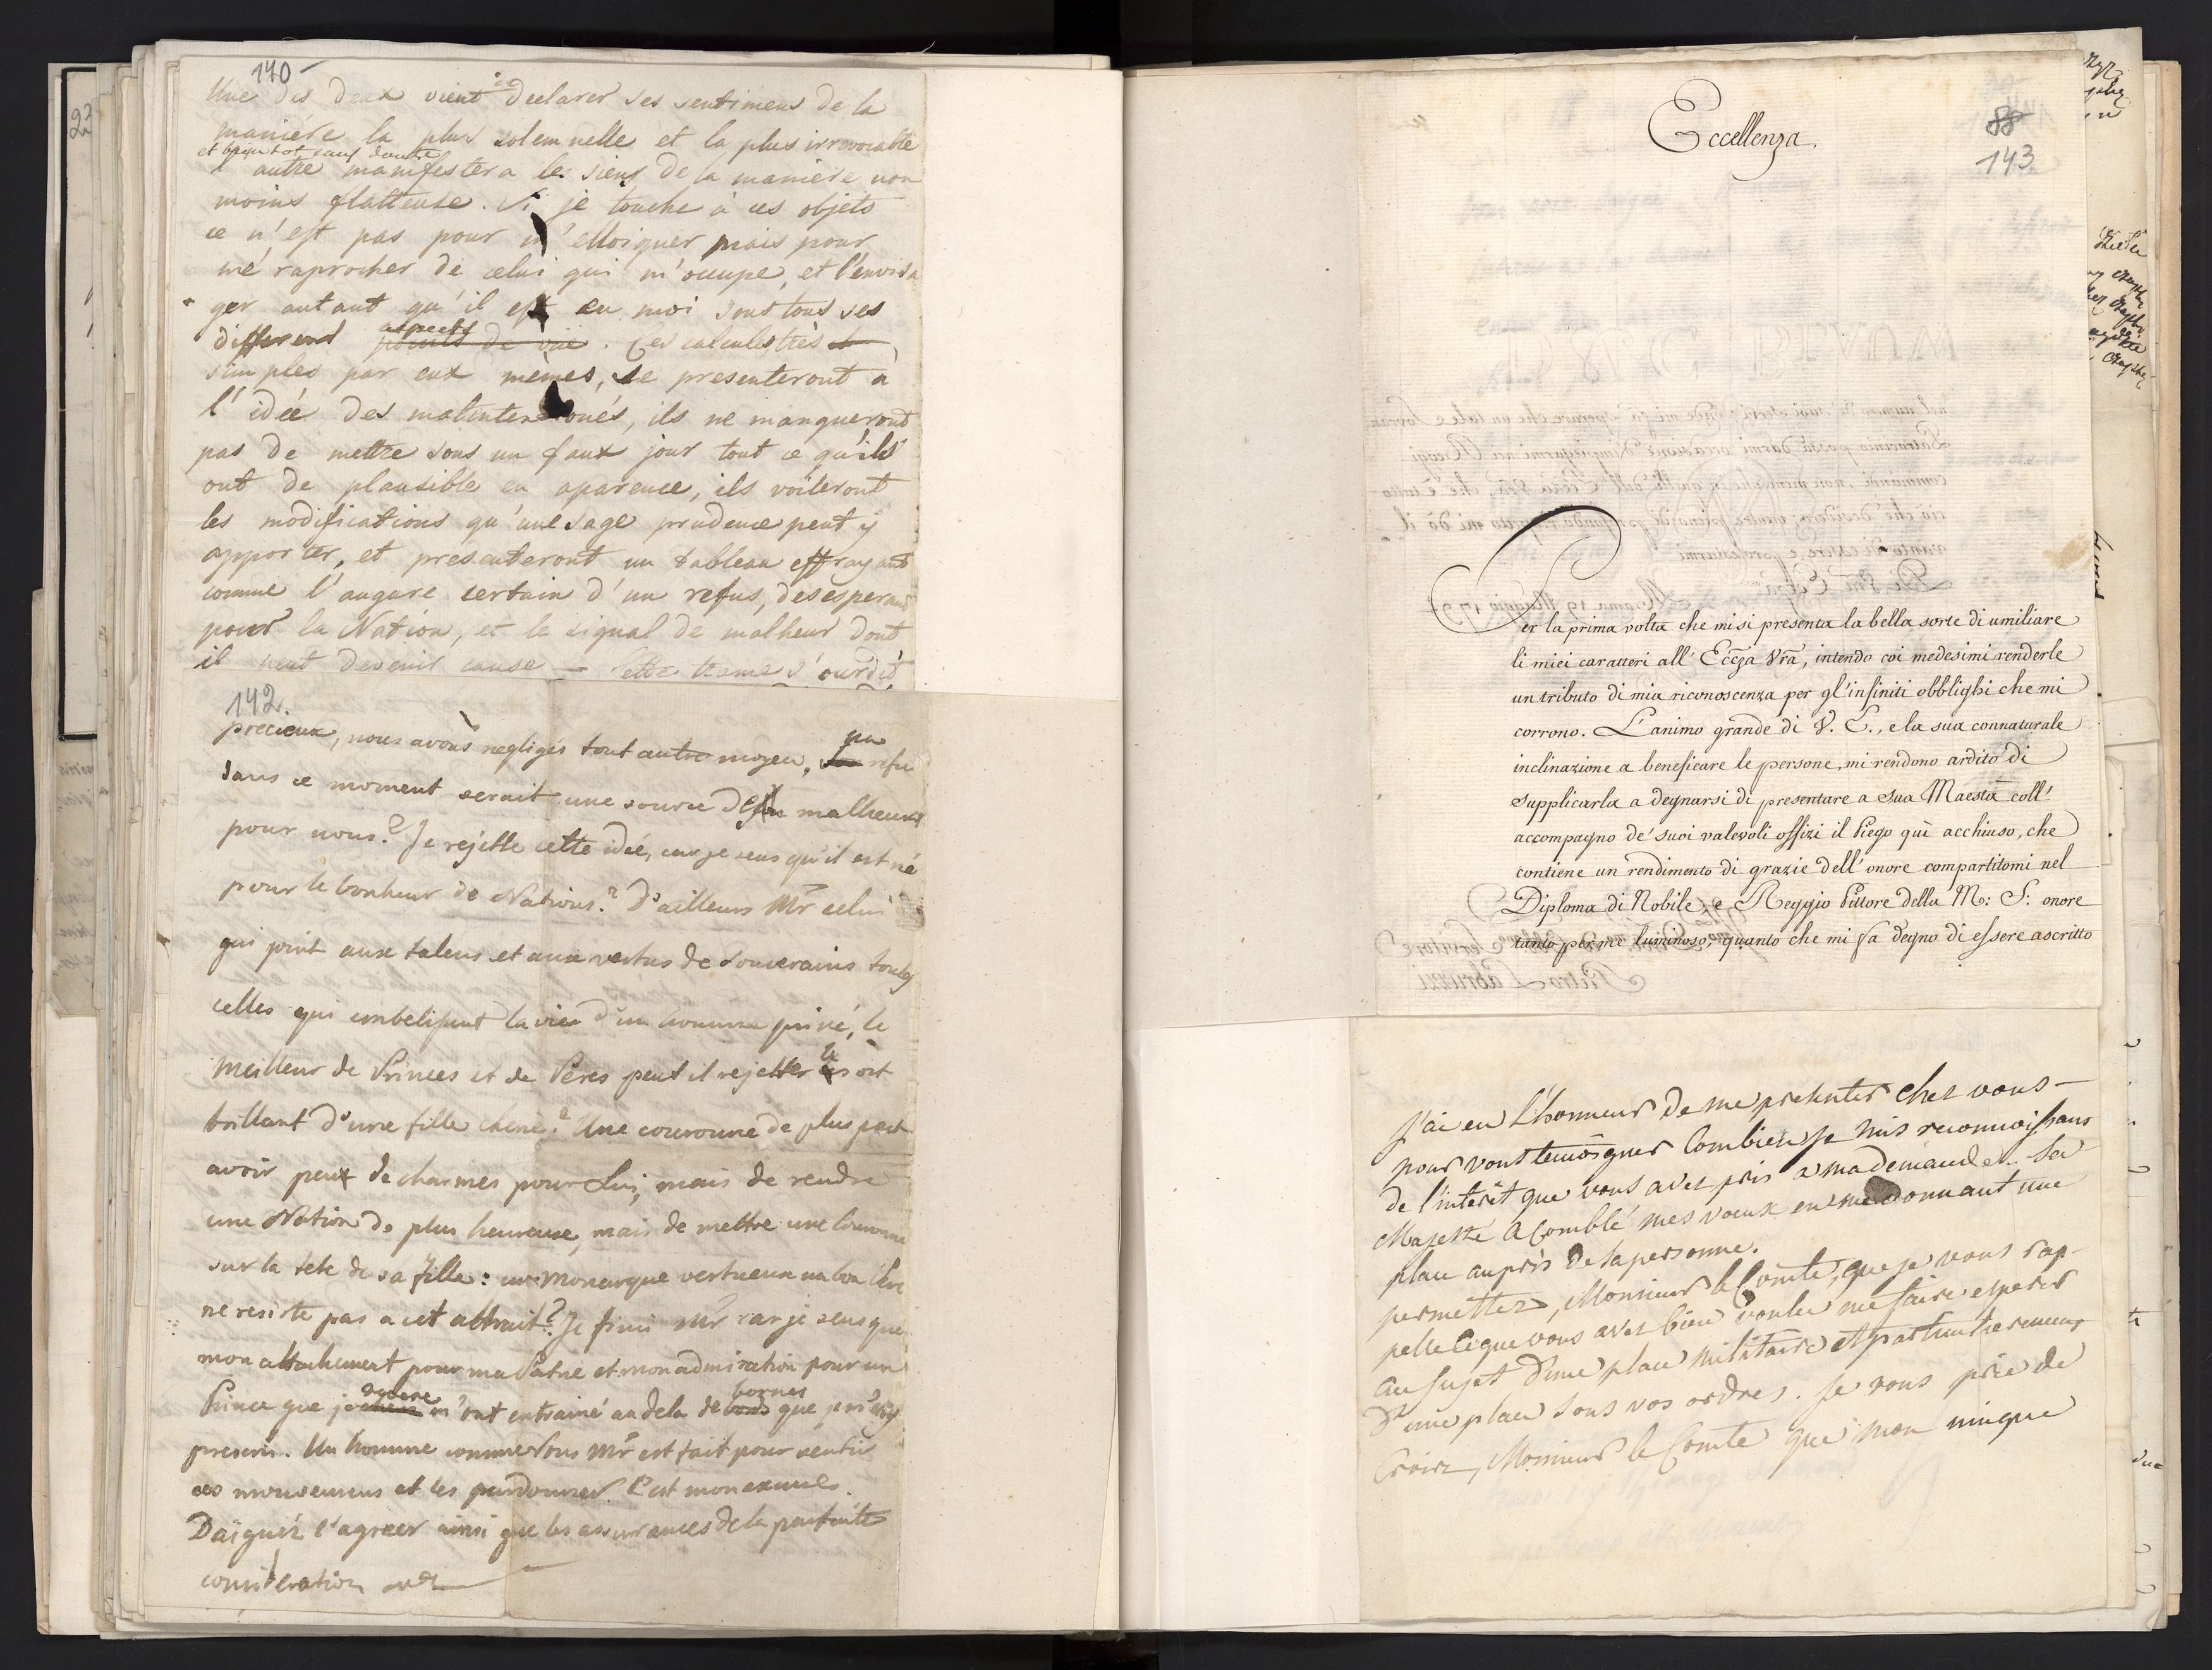 140
Une des deux vient de declarer ses sentimens de la
maniére la plus solemnelle et la plus irrevocable
et bientot sans doute
l'autre manifestera les siens de la maniére non
moins flatteuse. Si je touche à ces objets
ce n'est pas pour m'elloigner mais pour
me raprocher de celui qui m'occupe, et l'envisa
ger autant qu'il est en moi sous tous ses
aspects
different points de vüe. Ces calcules très
simples par eux mêmes, se presenteront à
l'idée des malintentionés, ils ne manqueront
pas de mettre sous un faux jour tout ce qu'ils
ont de plausible en aparence, ils voileront
les modifications qu'une sage prudence peut y
apporter, et presenteront un tableau effrayant
comme l'augure certain d'un refus, desesperant
pour la Nation, et le signal de malheur dont
il peut devenir cause — Cette trame s'ourdit
142.
precieux, nous avons negligés tout autre moyen, un refus
dans ce moment serait une source de malheurs
pour nous? Je rejette cette idée, car je sens qu'il est né
pour le bonheur de Nations? D'ailleurs Mr celui
qui joint aux talens et aux vertus de Souverains toutes
celles qui embelissent la vie d'un homme privé, le
meilleur de Princes et de Péres peut il rejetter le sort
brillant d'une fille cherie? Une couronne de plus peut
avoir peux de charmes pour Lui, mais de rendre
une Nation de plus heureuse, mais de mettre une Couronne
sur la tete de sa fille: un Monarque vertueux un bon Pere
ne resiste pas a cet attrait? Je finis Mr car je sens que
mon attachement pour ma Patrie et mon admiration pour un
revere bornes
Prince que je m'ont entrainé au dela de que je m'étois
prescris. Un homme comme Vous Mr est fait pour sentir
ces mouvemens et les pardonner C'est mon excuse.
Daignéz l'agreer ainsi que les assurances de la parfaite
consideration
Eccellenza.
88
143
Per la prima volta che mi si presenta la bella sorte di umiliare
li miei caratteri all' Eccza Vra, intendo coi medesimi renderle
un tributo di mia riconoscenza per gl'infiniti obblighi che mi
corrono. L'animo grande di V. E., e la sua connaturale
inclinazione a beneficare le persone, mi rendono ardito di
supplicarla a degnarsi di presentare a Sua Maestà coll'
accompagno de' suoi valevoli offizi il Piego quì acchiuso, che
contiene un rendimento di grazie dell'onore compartitomi nel
Diploma di Nobile, e Reggio Pittore della M: S: onore
tanto per me luminoso, quanto che mi fa degno di essere ascritto
J'ai eu L'honneur de me presenter chez vous
pour vous temoigner Combien je suis reconnoissant
de l'interêt que vous avez pris a ma demande. Sa
Majesté a Comblé mes voeux en me donnant une
place auprès de sa personne.
permettez, Monsieur le Comte, que je vous rap-
pelle ce que vous avez bien voulu me faire esperer
au sujet d'une place militaire et particulierement
d'une place sous vos ordres. Je vous prie de
Croire, Monsieur le Comte que mon unique